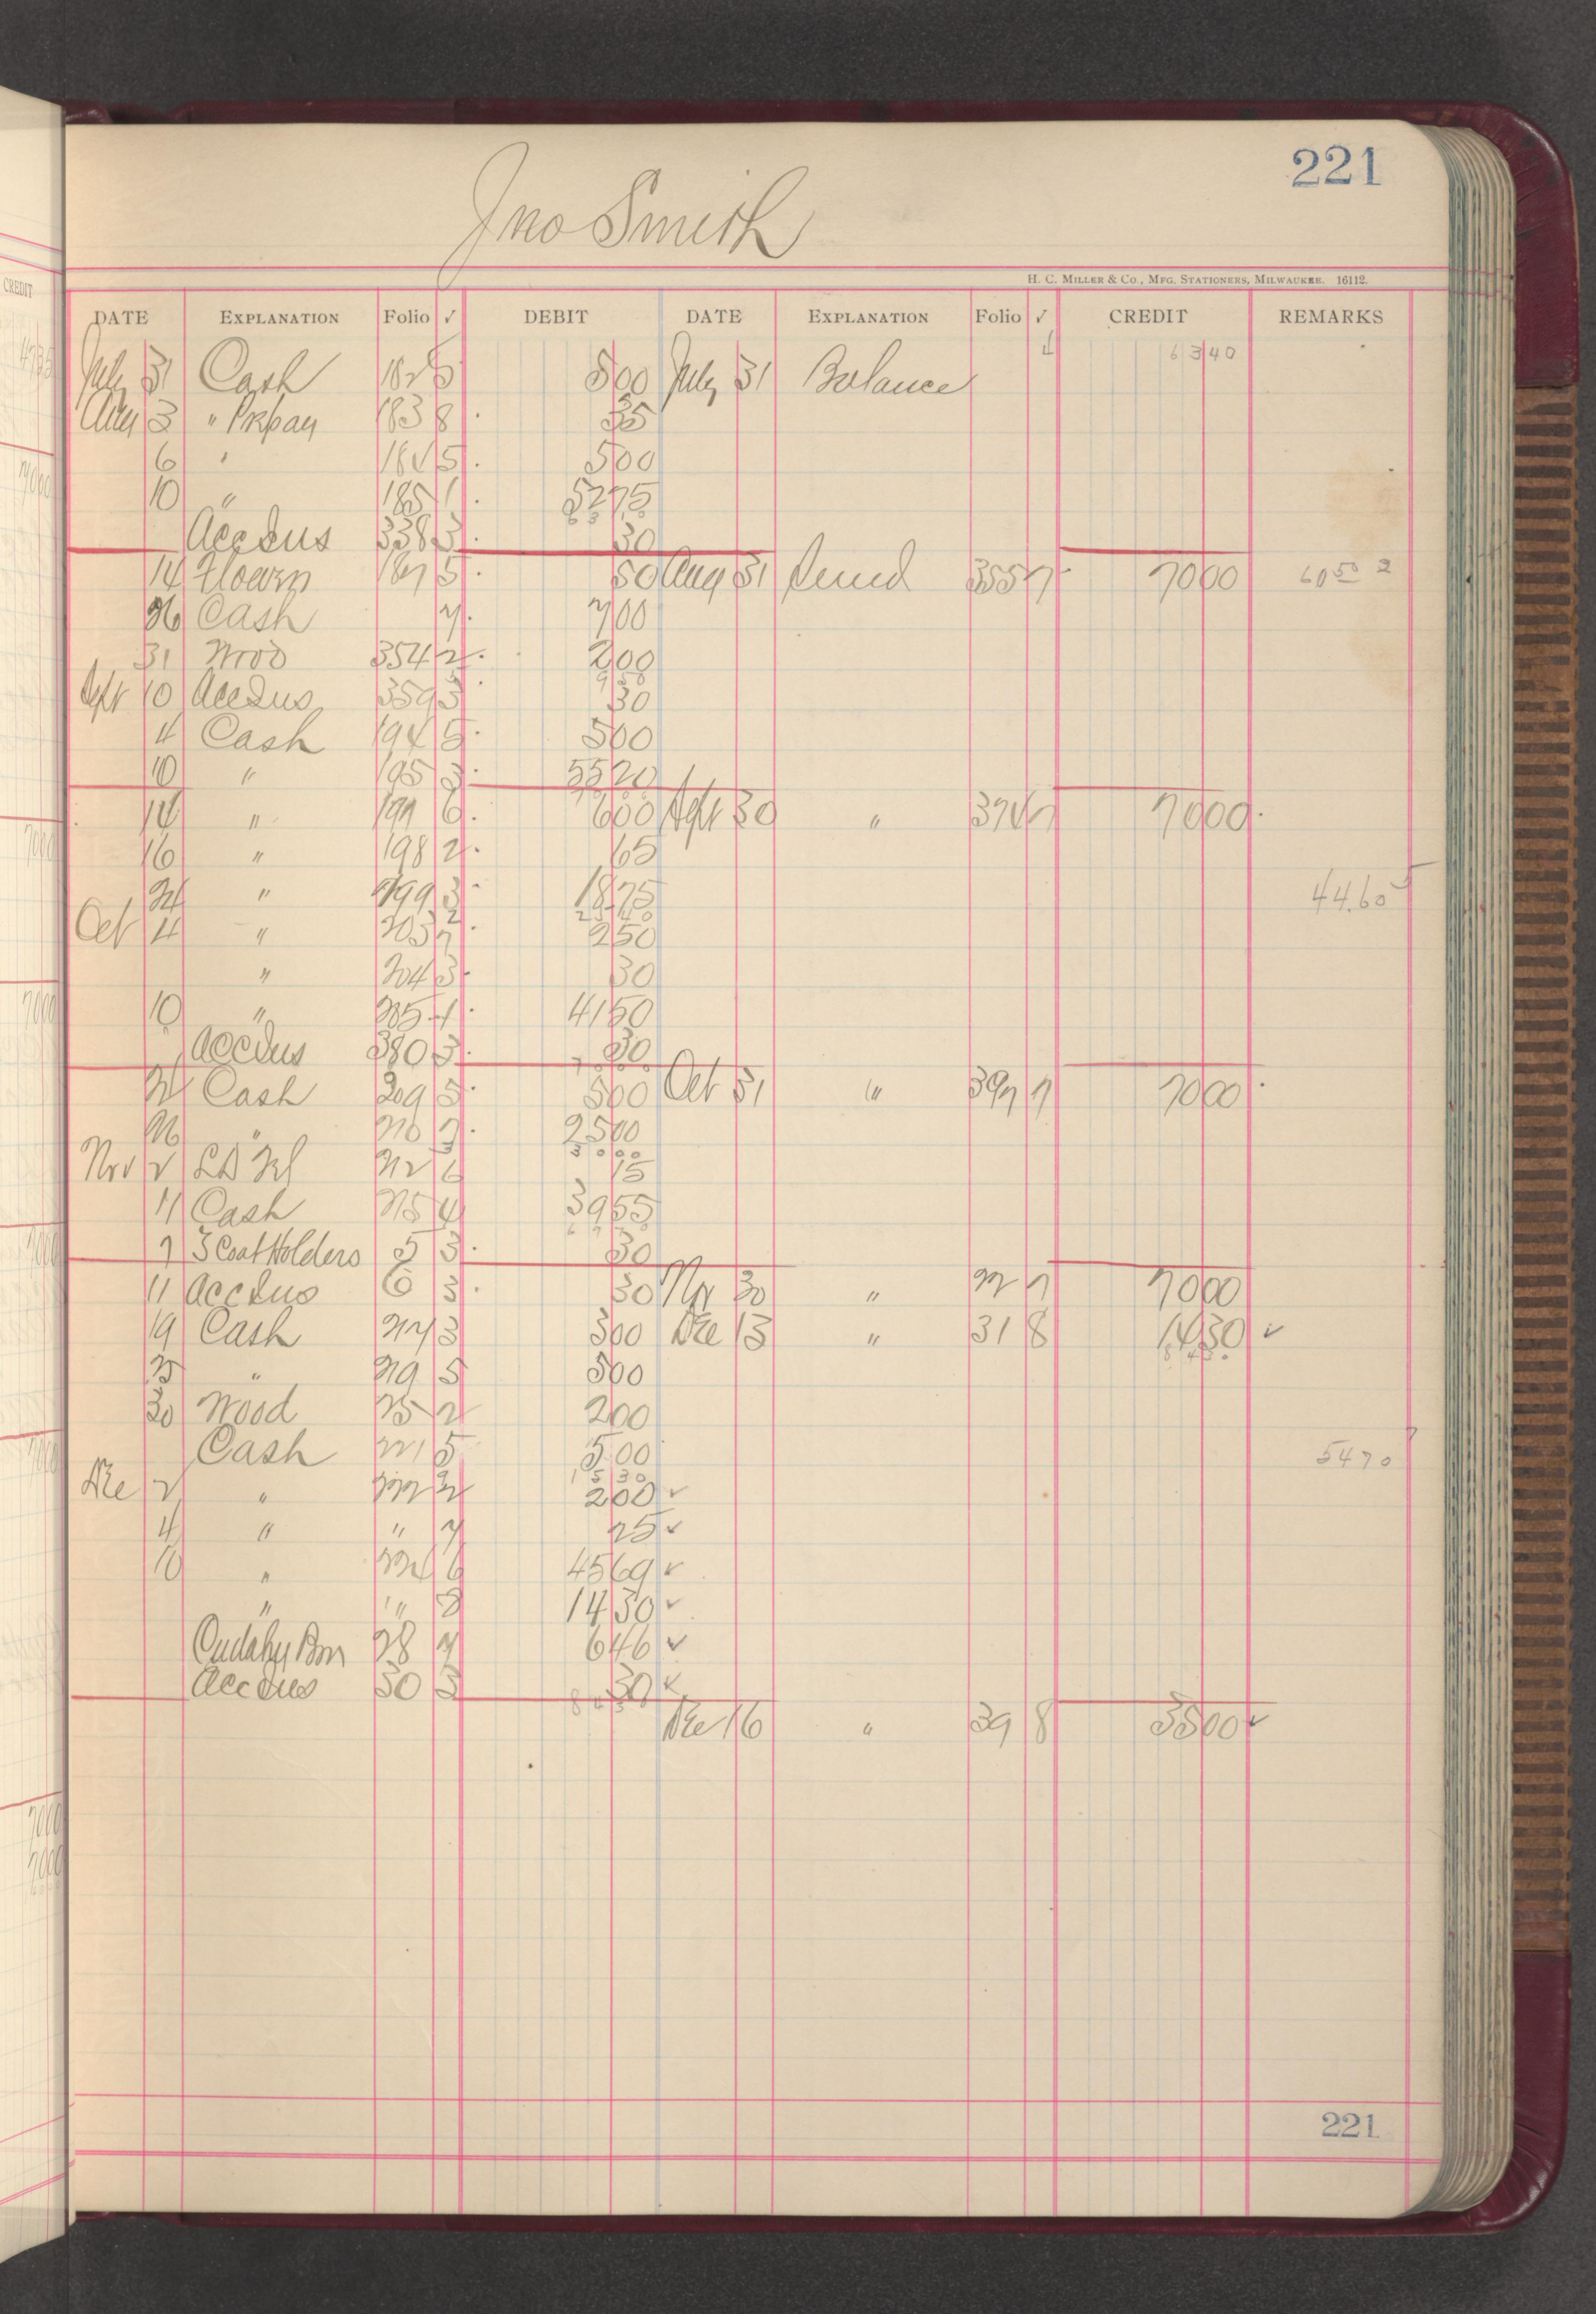 221
Jno Smith
H. C. MILLER & CO., MFG. STATIONERS, MILWAUKEE. 16112.
DATE EXPLANATION Folio √ DEBIT DATE EXPLANATION Folio √ CREDIT REMARKS
6340
July 31 Cash 182 5 500 July 31 Balance
Aug 3 " 183 8 35
6 " 184 5 500
10 " 185 1 5275
AccIns 338 3 30
14 187 5 50 Aug 31 355 7 7000 6050 2
26 Cash 7 700
31 Wood 354 2 200
Sept 10 AccIns 359 3 30
4 Cash 194 5 500
10 " 195 3 5520
14 " 197 6 600 Sept 30 " 374 7 7000
16 " 198 2 65
24 " 199 3 1875 44.60 5
2540
Oct 4 " 203 7 250
" 204 3 30
10 " 205 1 4150
AccIns 380 3 30
21 Cash 209 5 500 Oct 31 " 397 7 7000
26 " 210 7 2500
3000
Nov 2 212 6 15
11 Cash 215 4 3955
7 3 Coat Holders 5 3 30
11 AccIns 6 3 30 Nov 30 " 22 7 7000
19 Cash 217 3 300 Dec 13 " 31 8 1430 ✓
25 " 219 5 500
30 Wood 25 2 200
Cash 221 5 500 5470 7
1530
Dec 2 " 222 2 200 ✓
4 " " 7 25 ✓
10 " 224 6 4569 ✓
" " 8 1430 ✓
Cudahy 28 7 646 ✓
AccIns 30 3 30 ✓
Dec 16 " 39 8 3500 ✓
221
CREDIT
7000
7000
7000